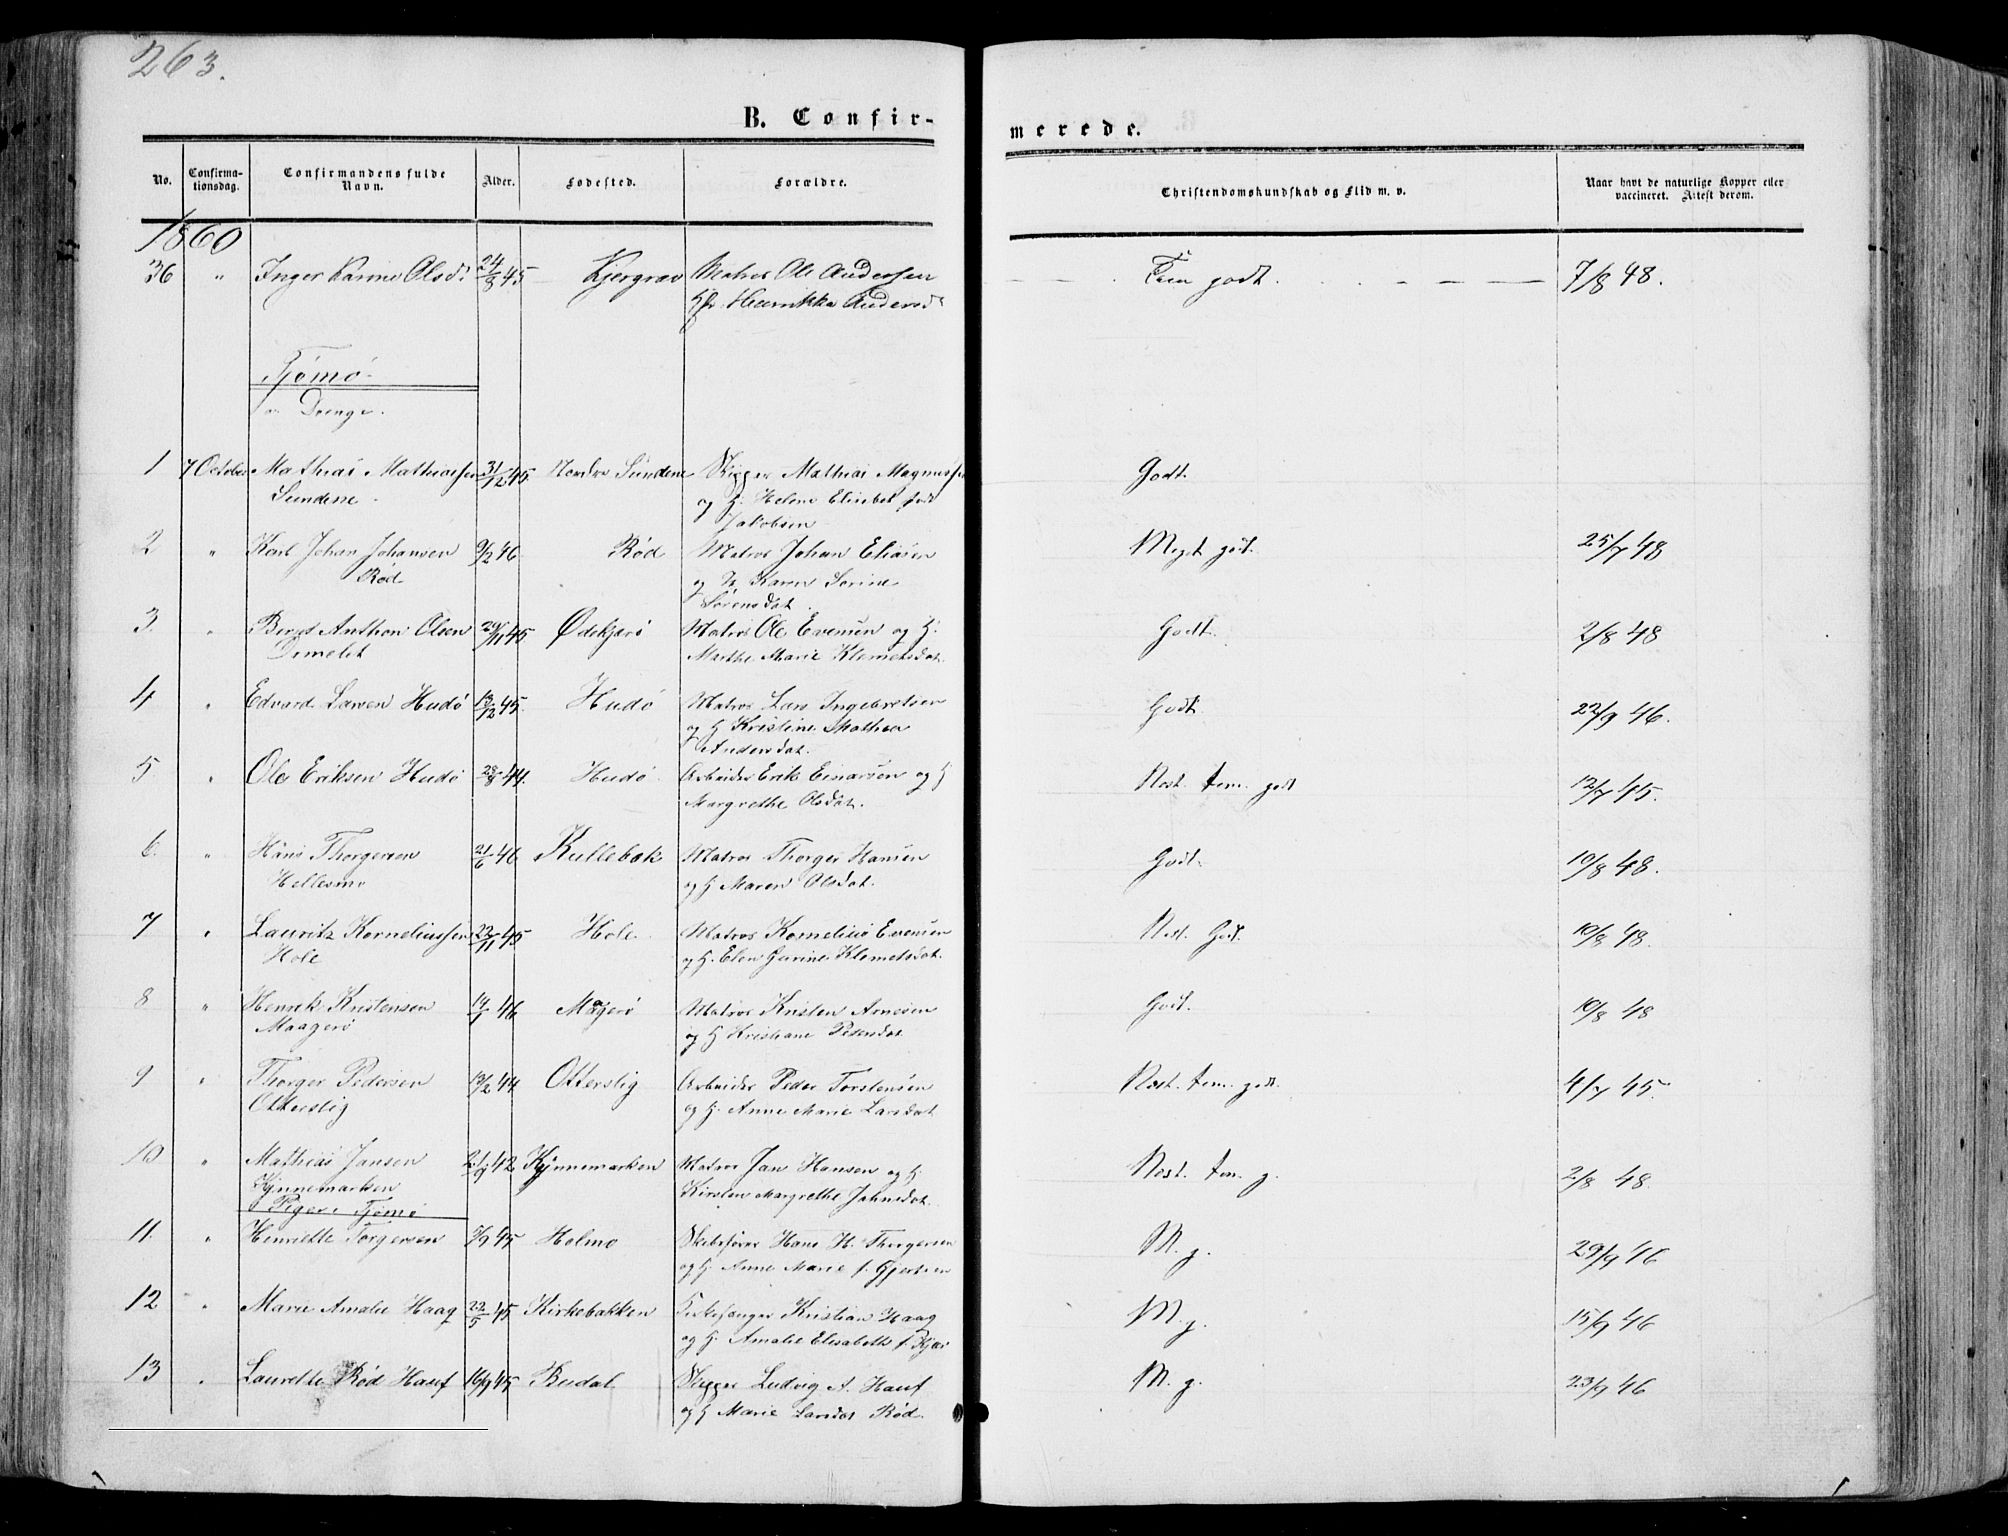 263.
B. Confir-
merede.
No.
Confirma-
tionsdag.
Confirmandens fulde
Navn.
Alder.
Fødested.
Forældre.
Christendomskundskab og Flid m. v.
Naar havt de naturlige Kopper eller
vaccineret. Attest derom.
1860
36 " Inger Karine Olsdr 24/3 45 Kjergrav Matros Ole Andersen Tem godt. 7/8 48.
Hr. Henrikka Andersdr
Tjømø
a Drenge.
1 7 October Mathias Mathiassen 31/12 45. Nordre Sundene Skipper Mathias Magnussen Godt.
Sundene og H. Helene Elisabet født
Jakobsen
2 " Karl Johan Johansen 9/2 46 Rød Matros Johan Eliasen Meget godt. 25/7 48
Rød og H. Karen Sorine
Sørensdat.
3. " Bernt Anthon Olsen 29/11 45 Ødekjære Matros Ole Evensen og H. Godt. 2/8 48
Ormelet Marthe Marie Klemetsdat.
4 " Edvard Larsen Hudø 13/12 45. Hudø Matros Lars Ingebretsen Godt. 22/9 46.
og H Kristine Mathea
Andersdat.
5 " Ole Eriksen Hudø 28/8 44. Hudø. Arbeider Erik Einarsen og H Næst. tem. godt 12/7 45.
Margrethe Olsdat.
6. " Hans Thorgersen 21/6 46 Kullebæk Matros Thorger Hansen Godt. 10/8 48.
Hellesmo og H Maren Olsdat.
7 " Lauritz Korneliussen 22/11 45 Hole. Matros Kornelius Evensen Næst. Godt. 10/8 48.
Hole og H. Elen Gurine Klemetsdat.
8 " Henrik Kristensen 14/1 46 Magerø Matros Kristen Arnesen Godt. 10/8 48
Maagerø og H Kristiane Pedersdat
9 " Thorger Pedersen 13/2 44 Otterstig Arbeider Peder Torstensen Næst. tem. godt. 4/7 45.
Otterstig og H. Anne Marie Larsdat
10 " Mathias Jansen 21/9 42 Kynnemarken Matros Jan Hansen og H. Næst. tem. g. 2/8 48.
Kynnemarken Kirsten Margrethe Johnsdat.
Piger. Tjømø
11. " Henriette Torgersen 5/9 45 Holmo Skibsfører Hans H. Thorgersen M. g. 29/9 46
og H. Anne Marie f. Gjertsen
12 " Marie Amalie Haag 22/5 45 Kirkebakken Kirkesanger Kristian Haag M. g. 15/9 46
og H. Amalie Elisabeth f. Kjær
13 " Laurette Rød Hauf 16/9 45 Budal Skipper Ludvig A. Hauf M. g. 23/9 46
og H Marie Larsdat Rød.